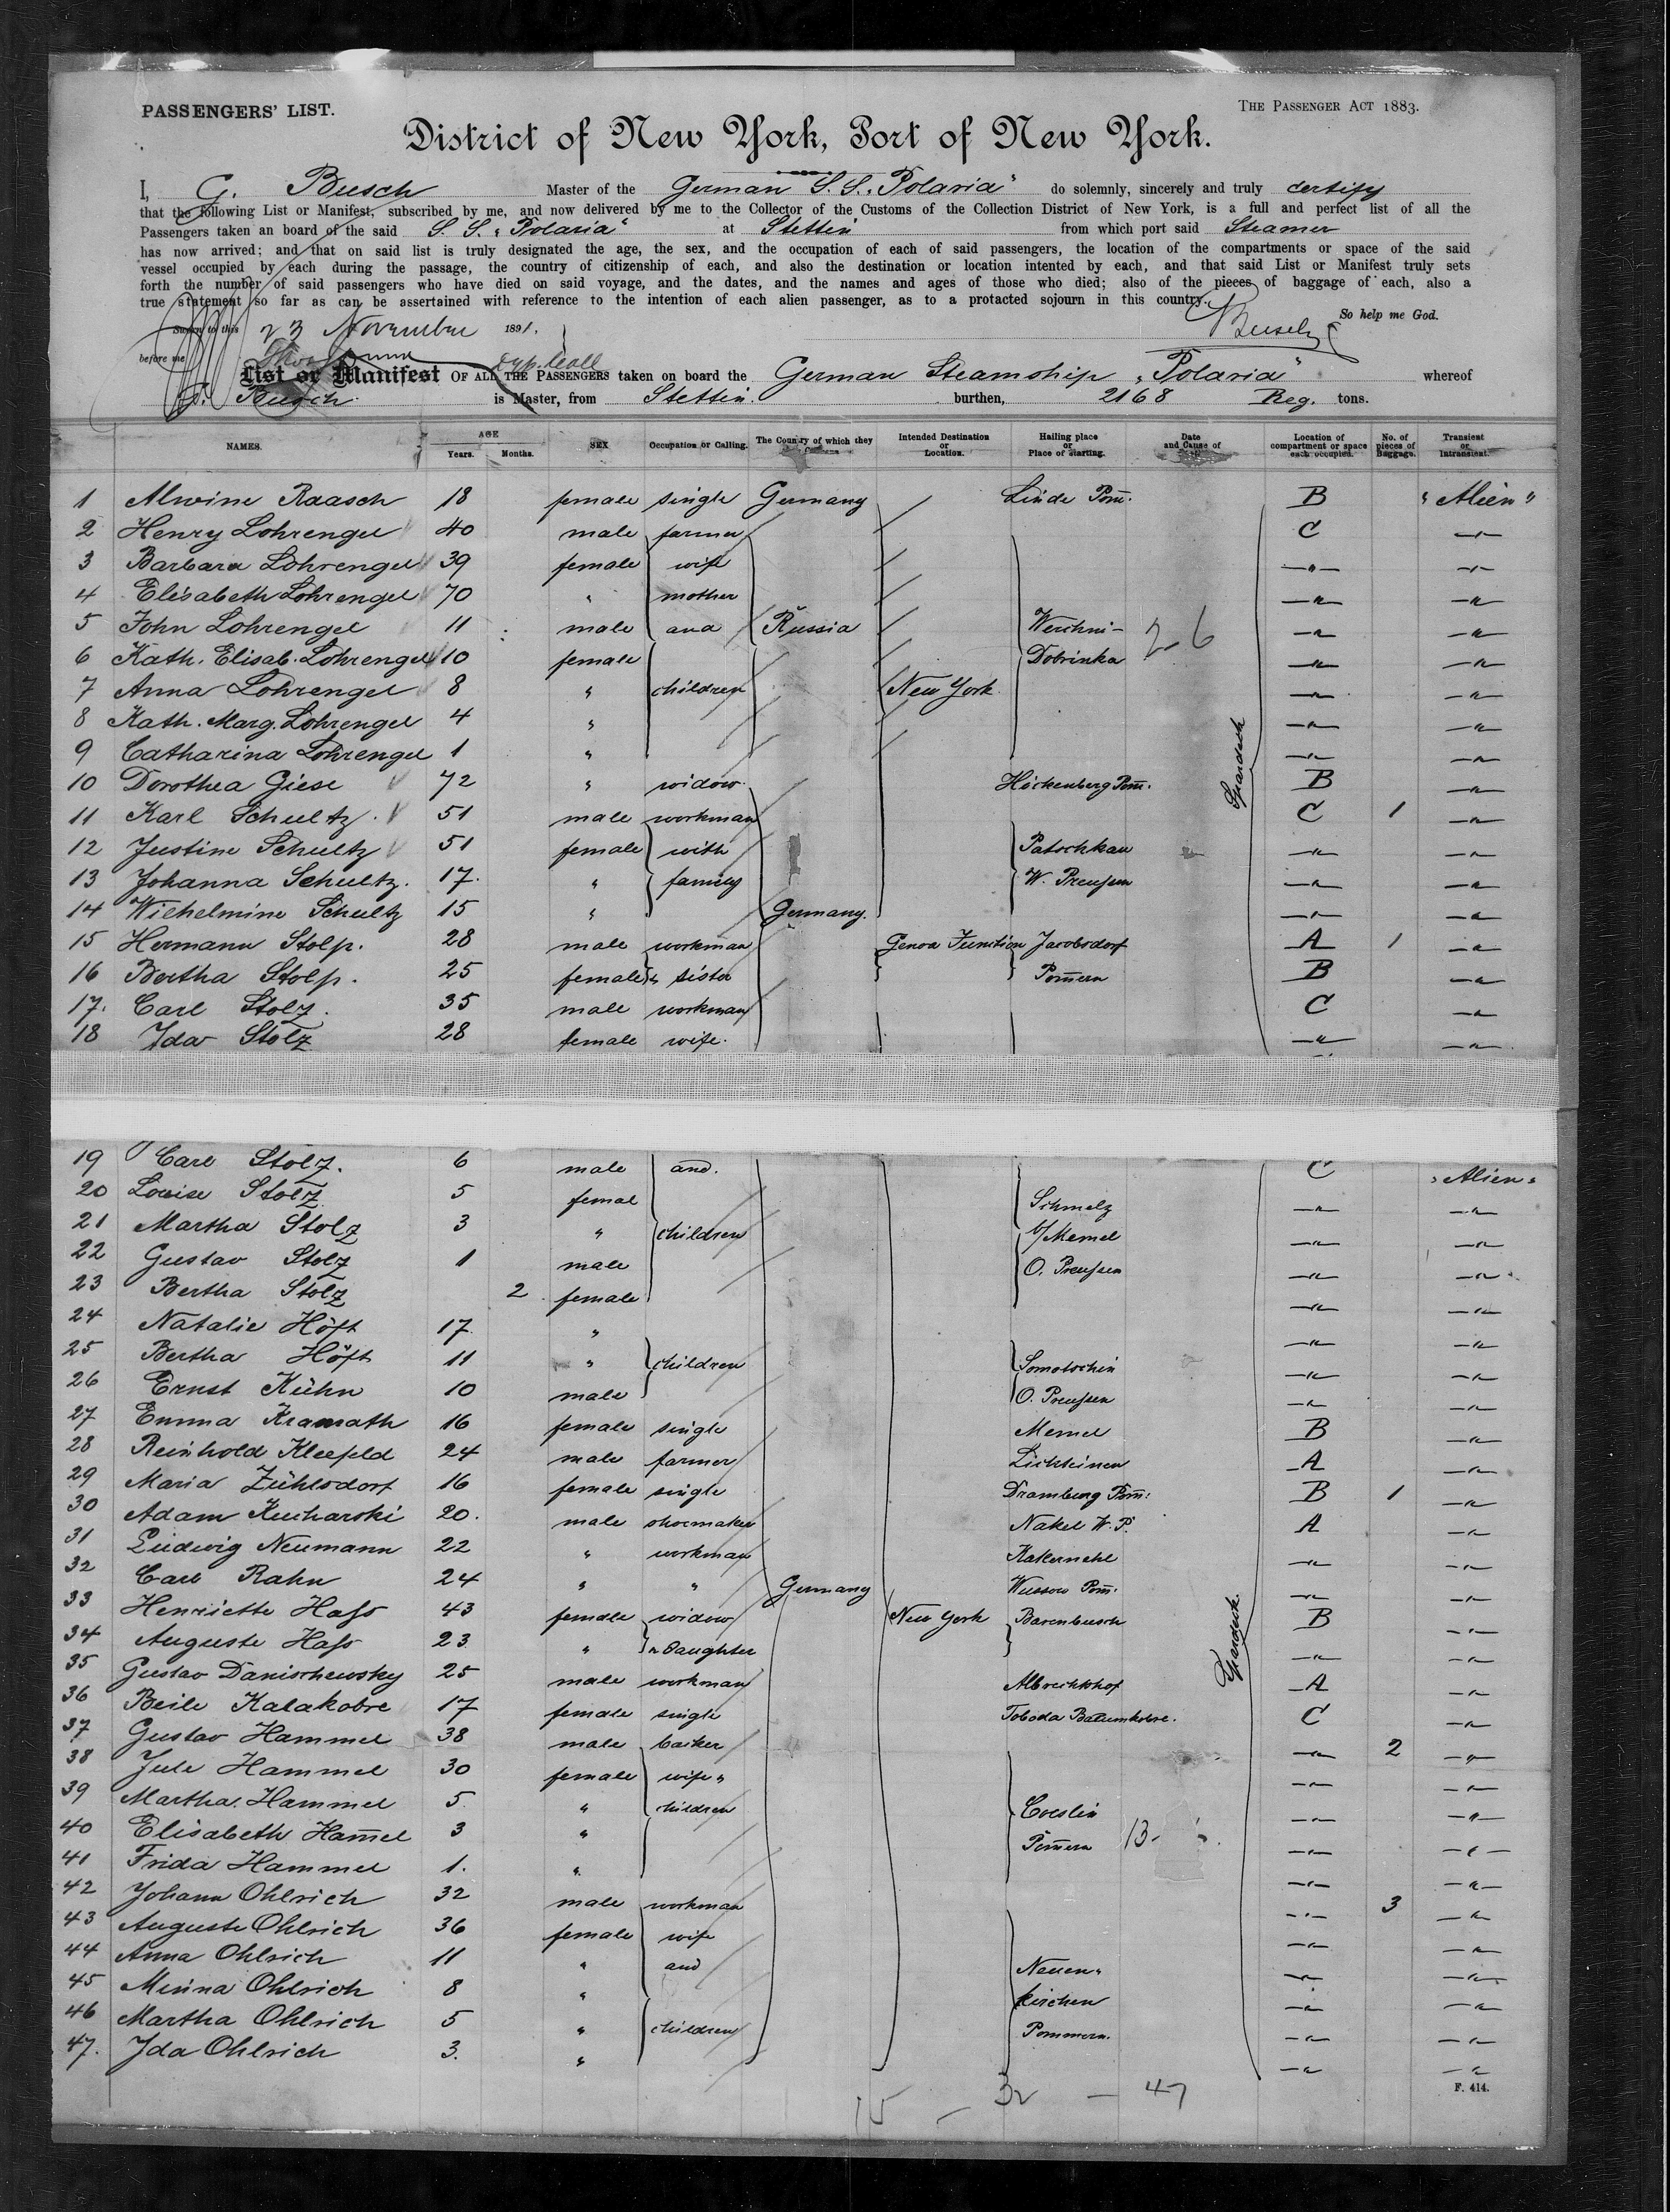 PASSENGERS' LIST.
THE PASSENGER ACT 1883.
District of New York, Port of New York.
I, G. Busch Master of the German S.S. „Polaria" do solemnly, sincerely and truly certify
that the following List or Manifest, subscribed by me, and now delivered by me to the Collector of the Customs of the Collection District of New York, is a full and perfect list of all the
Passengers taken an board of the said S. S. „Polaria" at Stettin from which port said Steamer
has now arrived; and that on said list is truly designated the age, the sex, and the occupation of each of said passengers, the location of the compartments or space of the said
vessel occupied by each during the passage, the country of citizenship of each, and also the destination or location intented by each, and that said List or Manifest truly sets
forth the number of said passengers who have died on said voyage, and the dates, and the names and ages of those who died; also of the pieces of baggage of each, also a
true statement so far as can be assertained with reference to the intention of each alien passenger, as to a protacted sojourn in this country.
So help me God.
Sworn to this 23 November 1891. Busch
before me
List or Manifest OF ALL THE PASSENGERS taken on board the German Steamship „Polaria" whereof
G. Busch is Master, from Stettin. burthen, 2168 Reg. tons.
NAMES. AGE Years. Months. SEX Occupation or Calling. The Country of which they Intended Destination or Location. Hailing place or Place of starting. Date and Cause of Location of compartment or space each occupied. No. of pieces of Baggage. Transient or Intransient.
1 Alwine Raasch 18 female single Germany Linde Pom̄. B „Alien"
2 Henry Lohrengel 40 male farmer C —"—
3 Barbara Lohrengel 39 female wife —"— —"—
4 Elisabeth Lohrengel 70 " mother —"— —"—
5 John Lohrengel 11 male and Russia Werchni- 2-6 —"— —"—
6 Kath. Elisab. Lohrengel 10 female Dobrinka —"— —"—
7 Anna Lohrengel 8 " children New York —"— —"—
8 Kath. Marg. Lohrengel 4 " —"— —"—
9 Catharina Lohrengel 1 " —"— —"—
10 Dorothea Giese 72 " widow. Höckenberg Pom̄. B —"—
11 Karl Schultz. 51 male workman C 1 —"—
12 Justine Schultz 51 female with Patschkau —"— —"—
13 Johanna Schultz. 17. " family W. Preußen —"— —"—
14 Wilhelmine Schultz 15 " Germany. —"— —"—
15 Hermann Stolp. 28 male workman Genoa Junction Jacobsdorf A 1 —"—
16 Bertha Stolp. 25 female " sister Pom̄ern B —"—
17. Carl Stolz. 35 male workman C —"—
18 Ida Stolz 28 female wife. —"— —"—
19 Carl Stolz. 6 male and. C „Alien"
20 Louise Stolz 5 femal Schmelz —"— —"—
21 Martha Stolz 3 " children b/Memel —"— —"—
22 Gustav Stolz 1 male O. Preußen —"— —"—
23 Bertha Stolz 2 female —"— —"—
24 Natalie Höft 17. " —"— —"—
25 Bertha Höft 11 " children Somotschin —"— —"—
26 Ernst Kühn 10 male O. Preußen —"— —"—
27 Emma Kramath 16 female single Memel B —"—
28 Reinhold Kleefeld 24 male farmer Lichteinen A —"—
29 Maria Zühlsdorf 16 female single Dramburg Pom̄. B 1 —"—
30 Adam Kucharski 20. male shoemaker Nakel W. P. A —"—
31 Ludwig Neumann 22 " workman Kakernehl —"— —"—
32 Carl Rahn 24 " " Germany Wussow Pom̄. —"— —"—
33 Henriette Haß 43 female widow New York Barenbusch B —"—
34 Auguste Haß 23 " " daughter —"— —"—
35 Gustav Danischewsky 25 male workman Albrechtshof A —"—
36 Beile Kalakobre 17 female single C —"—
37 Gustav Hammel 38 male baiker —"— 2 —"—
38 Jule Hammel 30 female wife " —"— —"—
39 Martha Hammel 5. " children Coeslin —"— —"—
40 Elisabeth Ham̄el 3 " Pom̄ern 13- —"— —"—
41 Frida Hammel 1. " —"— —"—
42 Johann Ohlrich 32 male workman —"— 3 —"—
43 Auguste Ohlrich 36 female wife —"— —"—
44 Anna Ohlrich 11 " and Neuen- —"— —"—
45 Minna Ohlrich 8 " kirchen —"— —"—
46 Martha Ohlrich 5 " children Pommern. —"— —"—
47. Ida Ohlrich 3. " —"— —"—
15 — 32 — 47
F. 414.